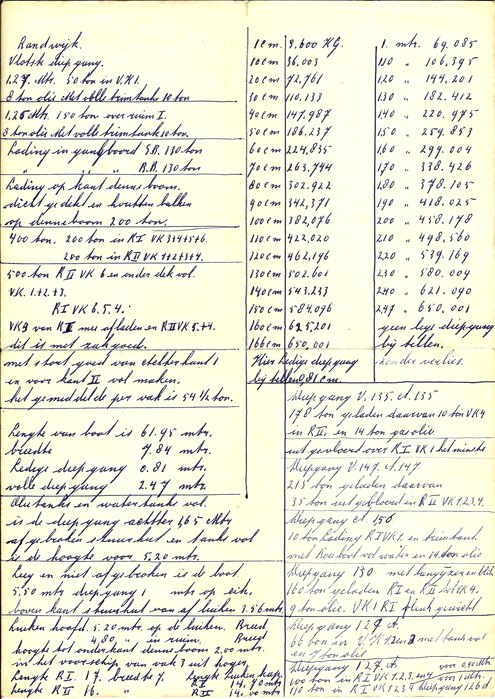 Randwijk.
Vlotsk diepgang.
1,27 Mtr. 50 ton in V.K1.
8 ton olie Met volle trimtank 10 ton
1,25 Mtr. 150 ton over ruim I.
8 ton olie Met volle trimtank 10 ton.
Lading in gangboord S.B. 130 ton
" " " B.B. 130 ton
Lading op kant denneboom.
dicht gedekt en houten balken
op denneboom 200 ton.
400 ton. 200 ton in RI VK 3+4+5+6.
200 ton in RII VK 1+2+3+4.
500 ton RII VK 6 en onder dek vol.
VK. 1+2+3.
RI VK 6.5.4.
VK3 van RI mee afladen en RII VK 5.+4.
dit is met zakgoed.
met stortgoed van achterkant I
en voorkant II vol maken.
het gemiddelde per vak is 54½ ton.
Lengte van boot is 61.95 mtr.
breedte 7.84 mtr.
Ledige diepgang 0.81 mtr.
volle diepgang 2.47 mtr.
Olietanks en watertanks vol.
is de diepgang achter 1,65 Mtr
afgebroken stuurhut en tanks vol
is de hoogte voor 5.20 mtr.
Leeg en niet afgebroken is de boot.
5.50 mtr diepgang 1 mtr op eik.
bovenkant stuurhut vanaf luiken 3.56 mtr.
Luikenhoofd. 5.20 mtr op de luiken. Breed
" 4,80 " in ruim. Breed
hoogte tot onderkant denneboom 2.00 mtr.
in het voorschip van vak 3 uit hoger
Lengte RI. 17. breedte 7. Lengte luikenkap.
Lengte RII 16. " RI 14.70 mtr
RII 14.00 mtr
1 cm. 3.600 KG.
10 cm 36,003
20 cm 72,761
30 cm 110,133
40 cm 147,987
50 cm 186,237
60 cm 224,835
70 cm 263,744
80 cm 302,922
90 cm 342,371
100 cm 382,076
110 cm 422,020
120 cm 462,196
130 cm 502,601
140 cm 543,233
150 cm 584,096
160 cm 625,201
166 cm 650,001
Hier Ledige diepgang
bij tellen 0,81 cm.
1. mtr. 69.085
110 " 106.395
120 " 144.201
130 " 182.412
140 " 220.975
150 " 259.853
160 " 299.004
170 " 338.426
180 " 378.105
190 " 418.025
200 " 458.178
210 " 498.560
220 " 539.169
230 " 580.009
240 " 621.090
247 " 650.001
geen leeg diepgang
bij tellen.
zonder verlies.
Diepgang V.135. et.135
178 ton geladen daarvan 10 ton VK4
in RII. en 14 ton gasolie.
uitgevloerd over RI VK1 het minste
Diepgang V.147. et.147.
215 ton geladen daarvan
35 ton uitgevloerd in RII VK 1.2.3.4.
Diepgang et 156
10 ton Lading RIVK1. en trimtank
met Roeboot vol water en 14 ton olie
Diepgang 130 met lang ijzeren
160 ton geladen RI en RII tot VK4.
9 ton olie. VK1 RI flink gewicht
Diepgang 127 A.
66 ton in V.K 1.2 en 3 met tank vol
en 7 ton olie
Diepgang 127. A. voor 0,40 Mtr
100 ton in RI VK 1.2.3. en 4 voor 1 mtr.
110 ton in RI VK 1.2.3.4 diepgang 126 A